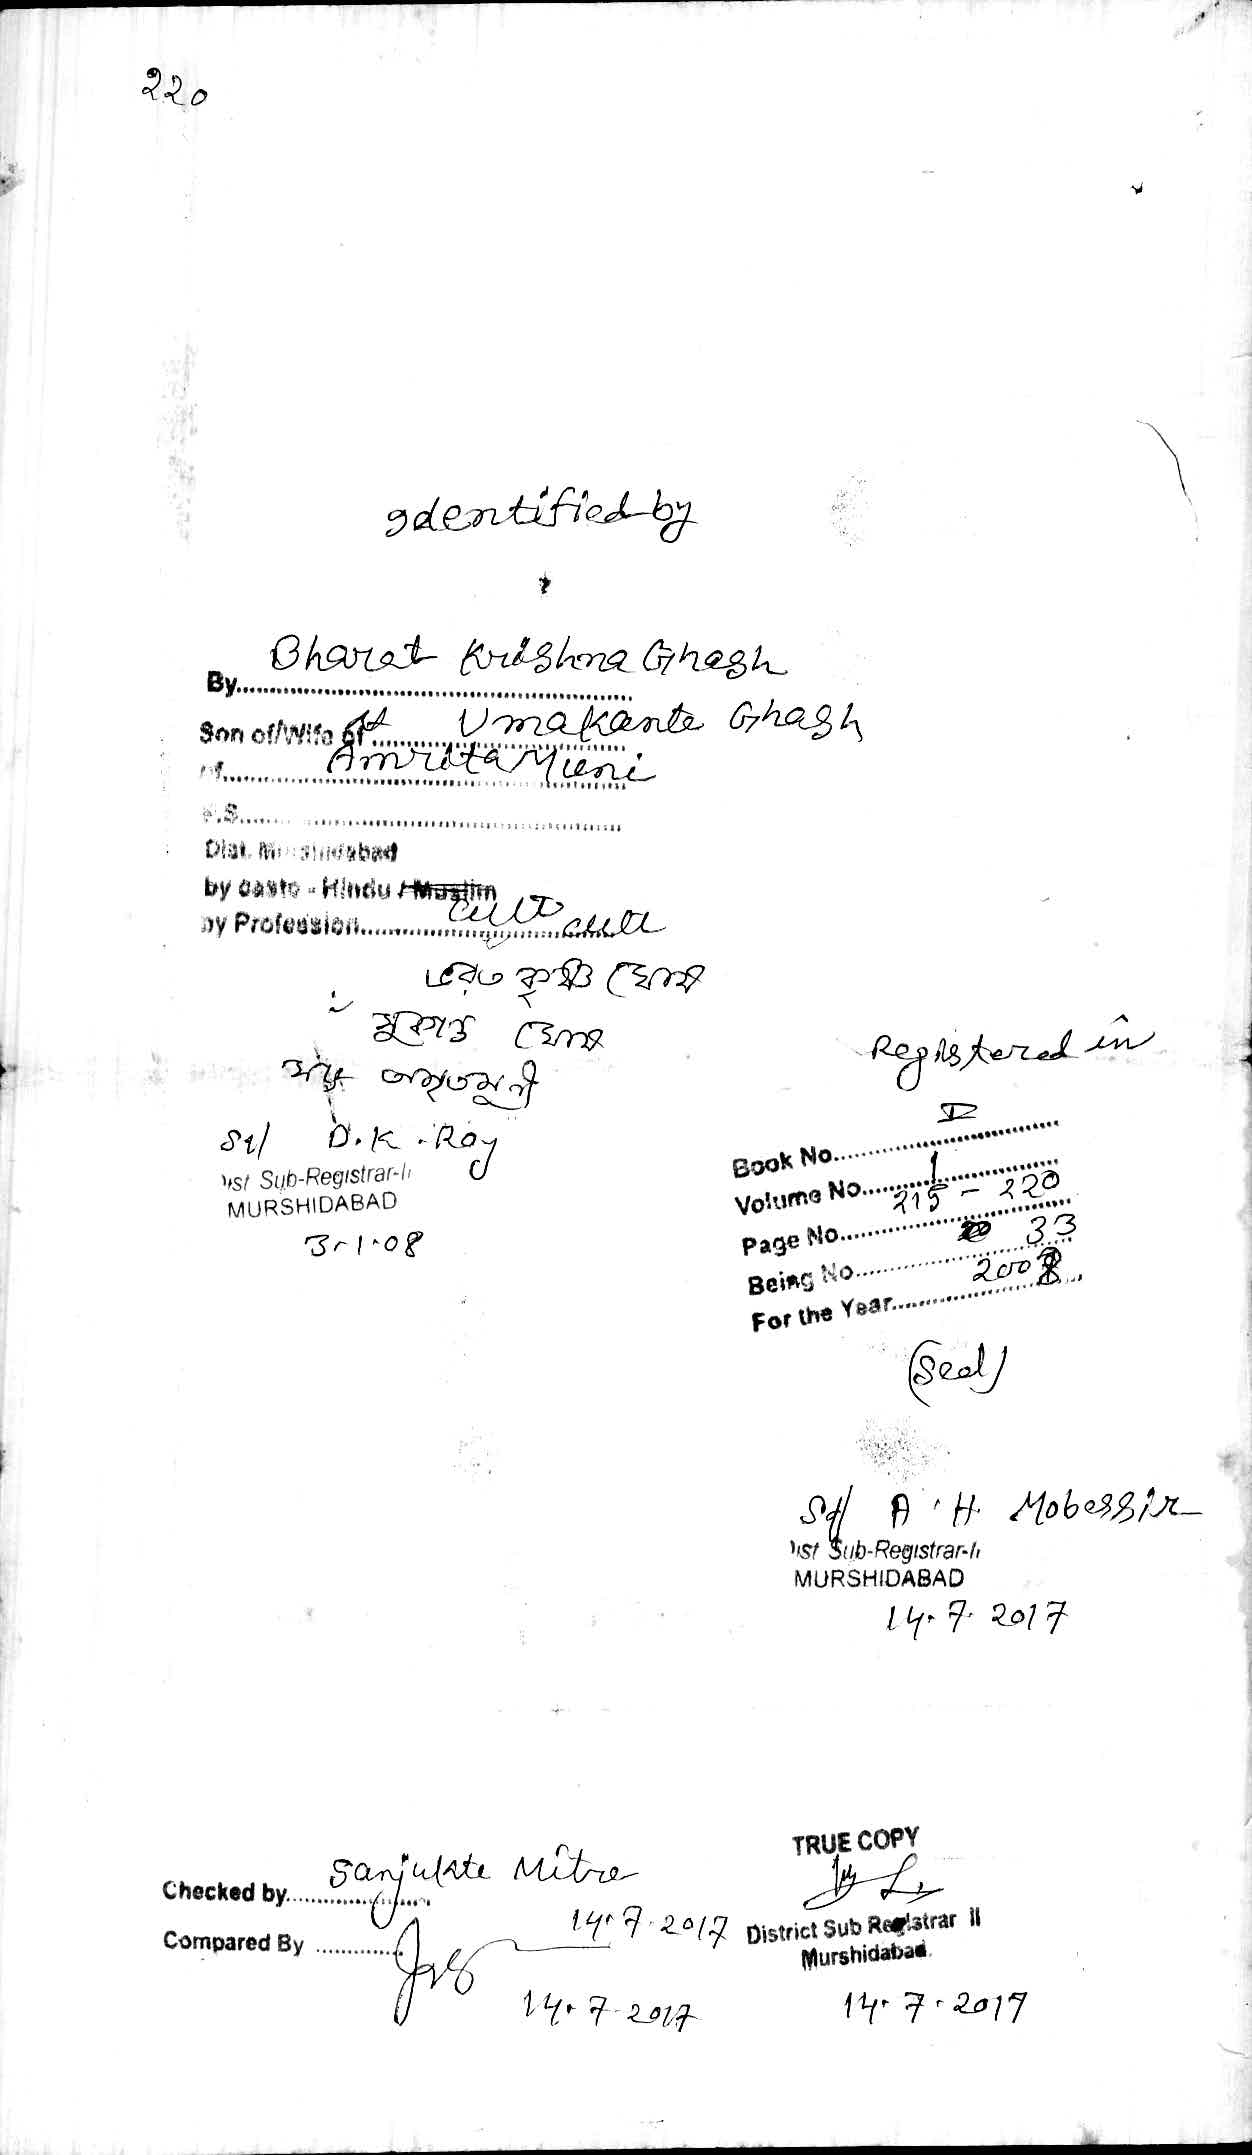 220
Identified by
Bharat Krishna Ghosh
By..........
Son of/Wife of.......... Umakanta Ghosh
of.......... Amrita Muni
P.S..........
Dist. Murshidabad
by caste - Hindu / Muslim
by Profession.......... cult
ভরত কৃষ্ণ ঘোষ
ঘোষ
অমৃতমুনী
Sd/ D.K. Roy
Dist Sub-Registrar-II
MURSHIDABAD
3.1.08
Registered in
Book No.......... I
Volume No.......... 1
Page No.......... 215 - 220
Being No.......... 33
For the Year.......... 2008
(Seal)
Sd/ A. H. Mobessir
Dist Sub-Registrar-II
MURSHIDABAD
14.7.2017
Checked by.......... Sanjukta Mitra
14.7.2017
Compared By ..........
14.7.2017
TRUE COPY
District Sub Registrar II
Murshidabad.
14.7.2017